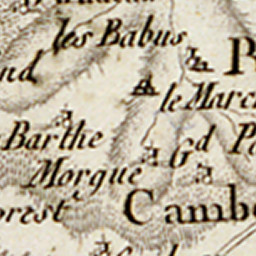 les Babus
nd
R
le Marc
Barthe
Gd P
Morgue
orest
Camb